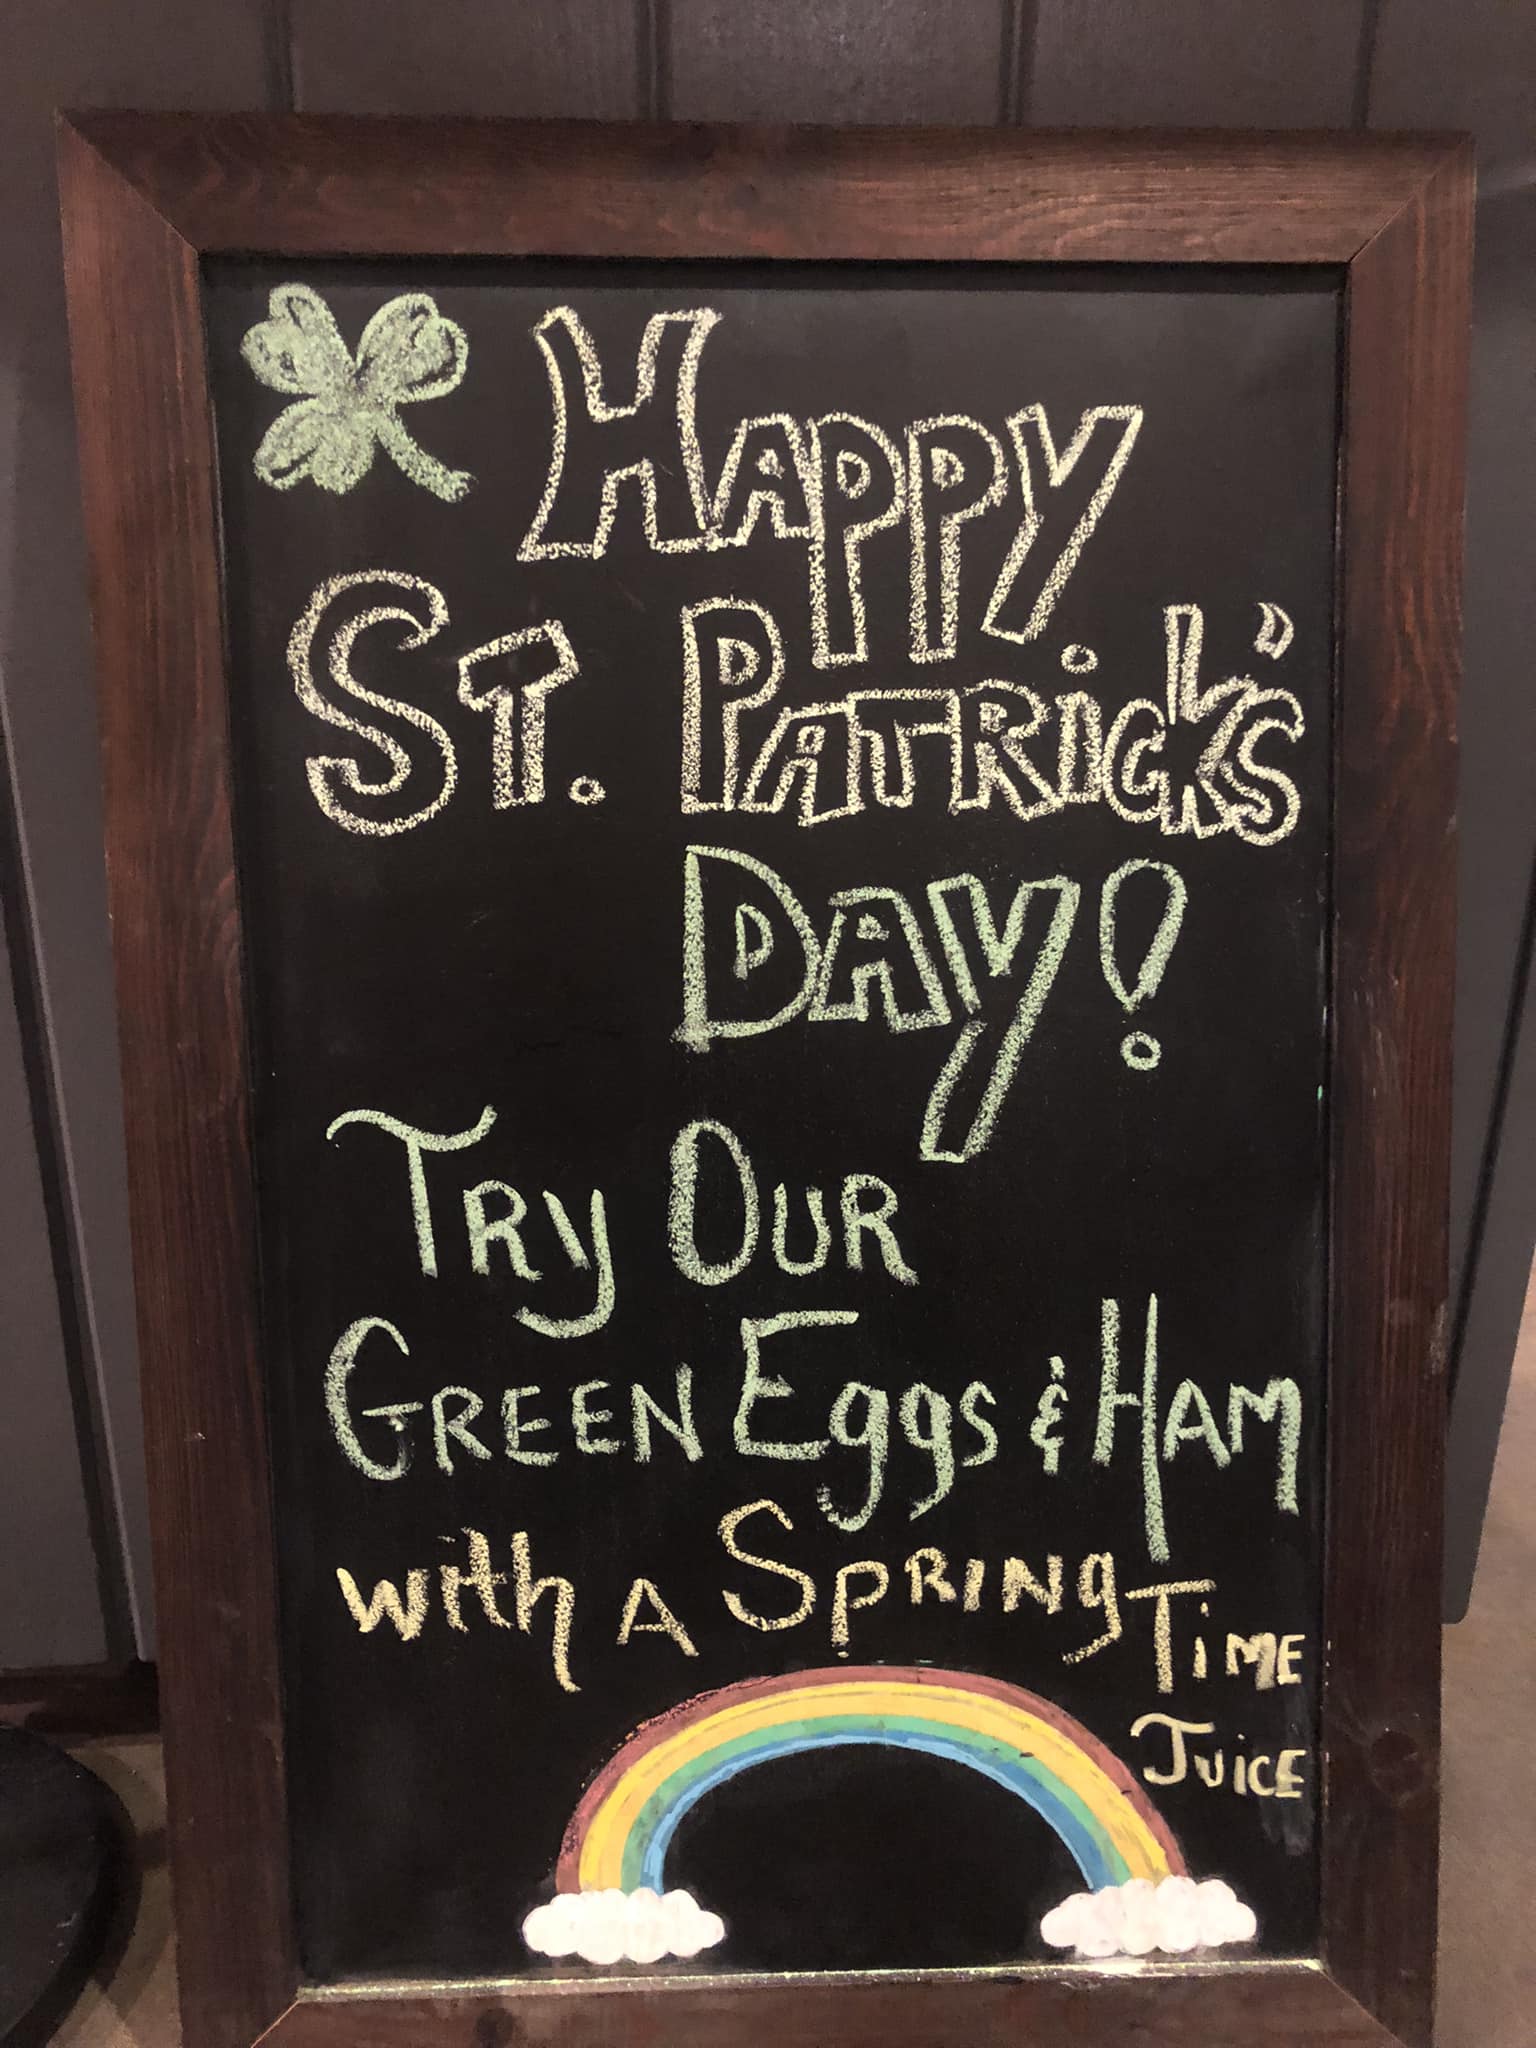 Happy
St. Patrick's
Day!
Try Our
Green Eggs & Ham
with a Spring Time
Juice